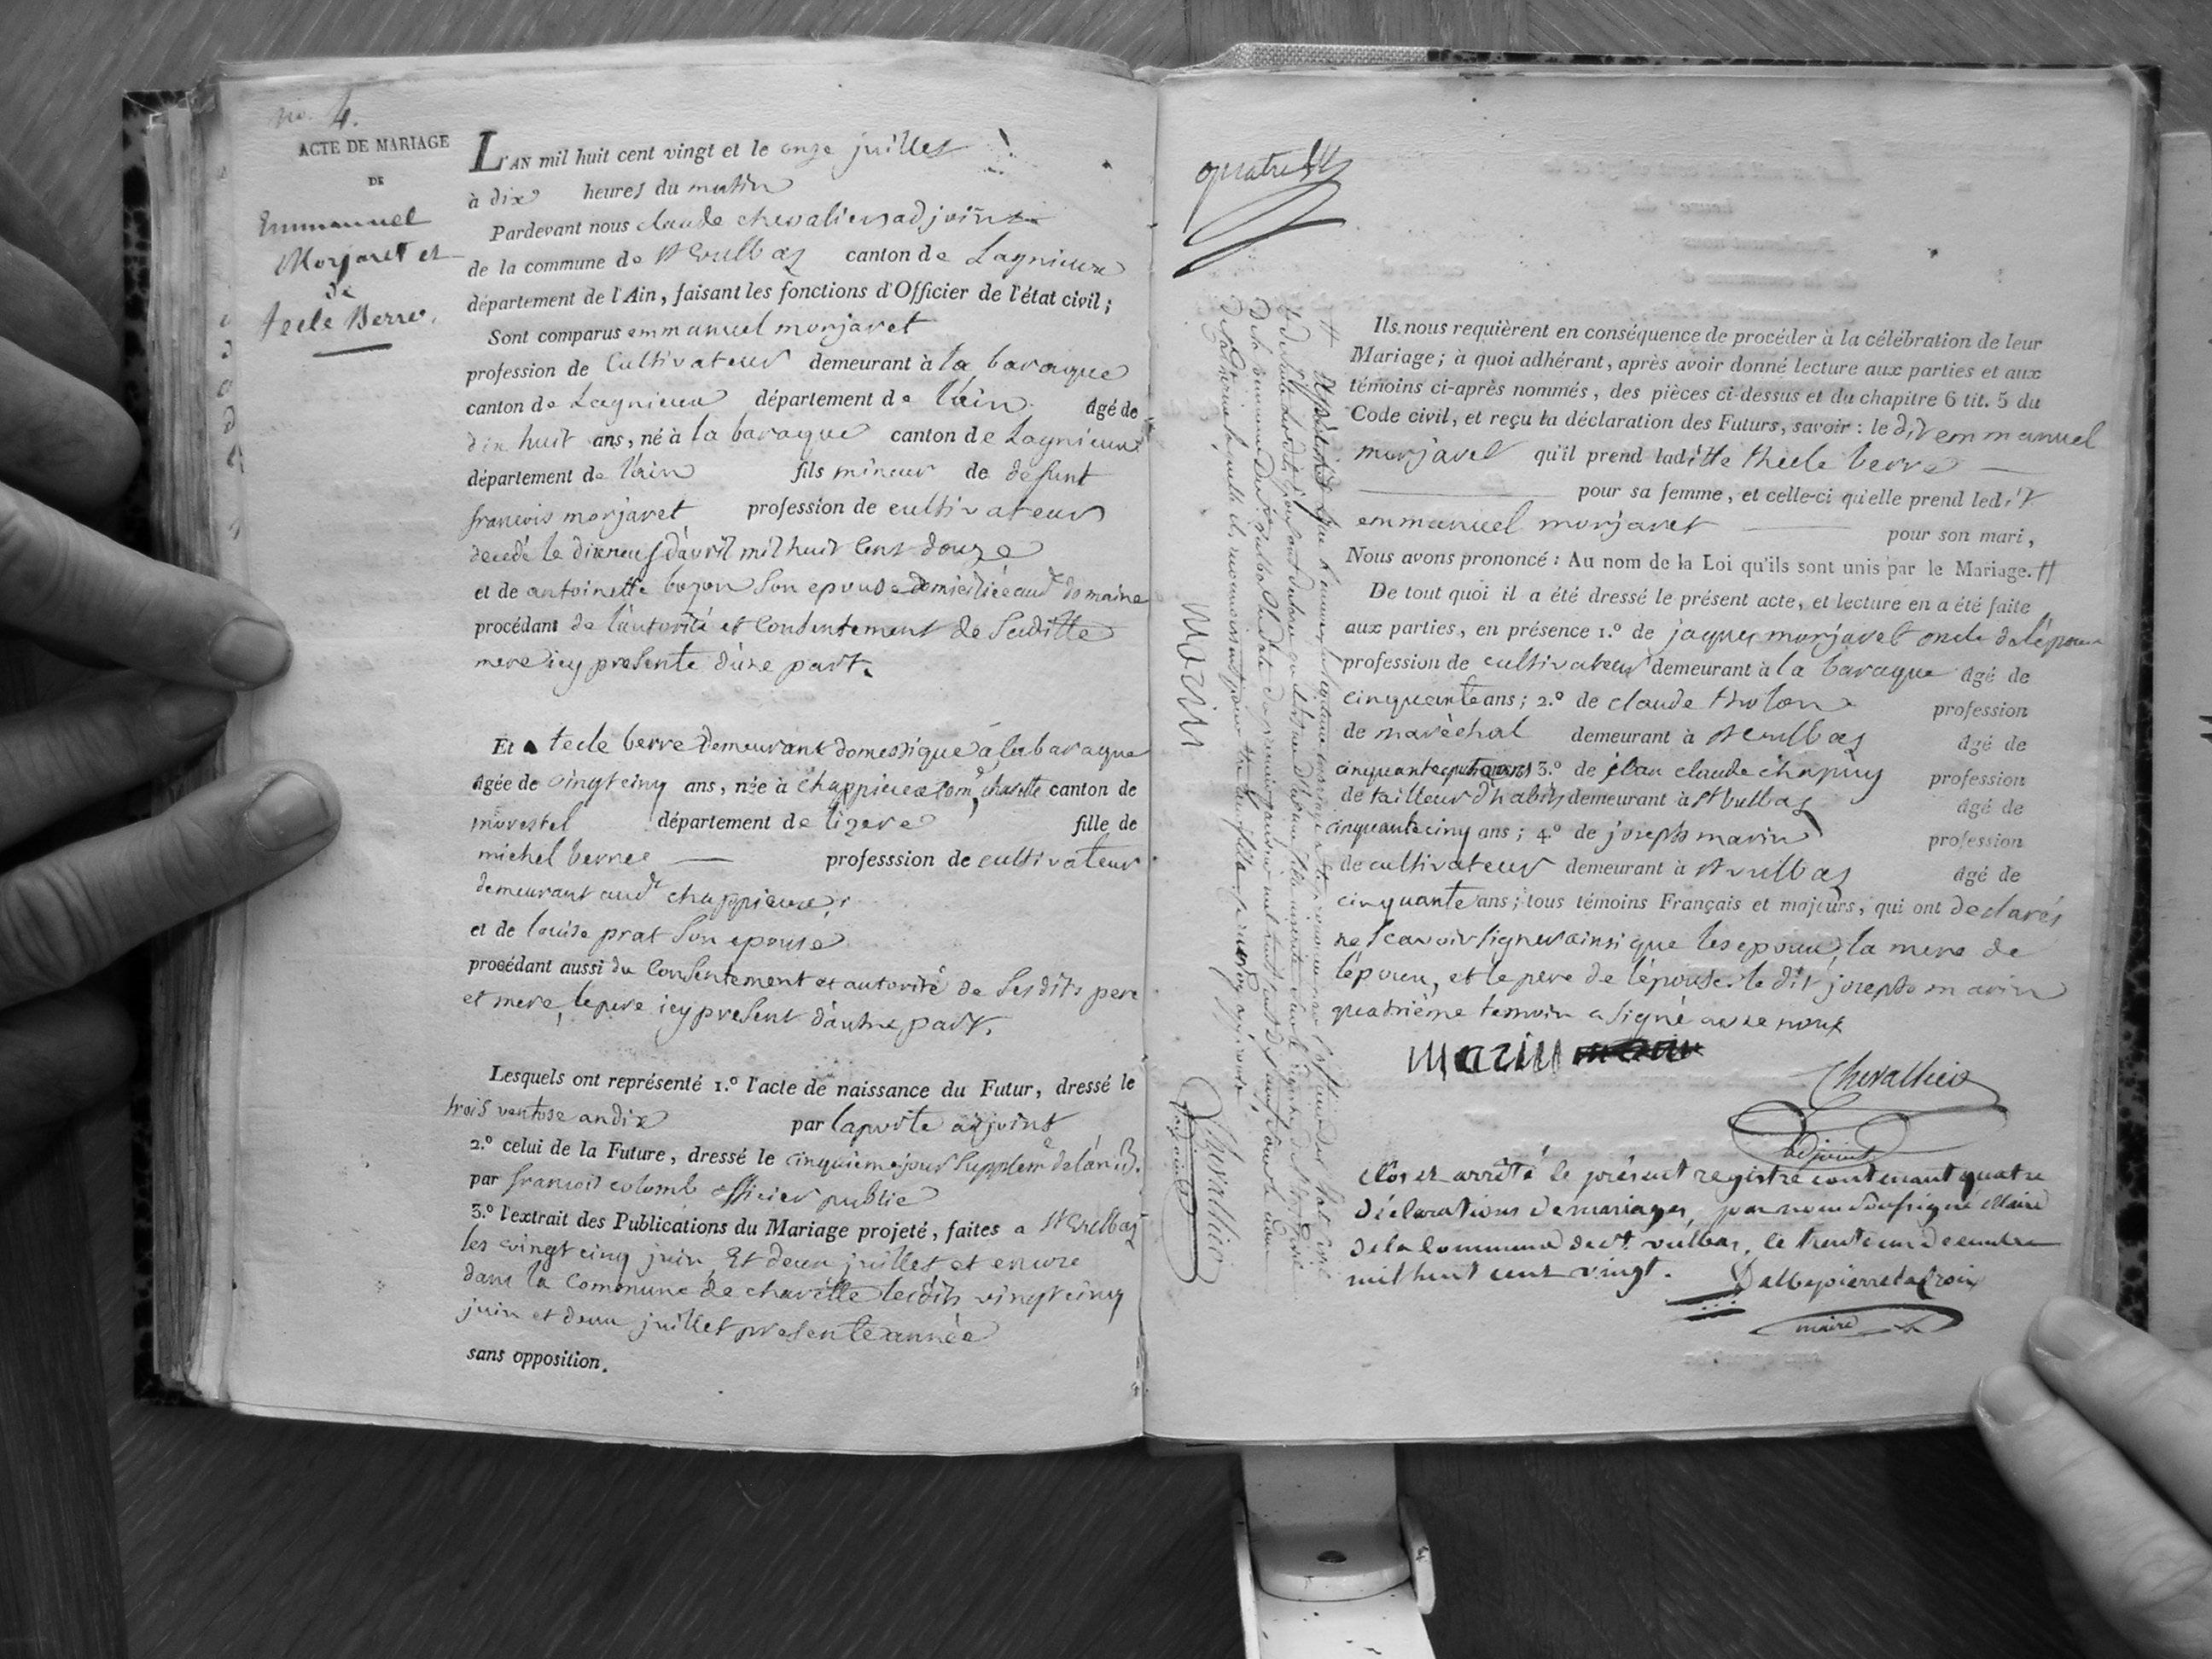 no. 4.
ACTE DE MARIAGE
DE
Emmanuel
Morjaret et
de
tecle Berre.
L'AN mil huit cent vingt et le onze juillet
à dix heures du matin
Pardevant nous claude chevalier adjoint
de la commune de St Vulbas canton de Lagnieux
département de l'Ain, faisant les fonctions d'Officier de l'état civil;
Sont comparus emmanuel morjaret
profession de Cultivateur demeurant à la baraque
canton de Lagnieux département de l'ain âgé de
dix huit ans, né à la baraque canton de Lagnieux
département de l'ain fils mineur de defunt
francois morjaret profession de cultivateur
decedé le dixneuf d'avril mil huit Cent douze
et de antoinette bozon son epouse domiciliée aud domaine
procédant de l'autorité et Consentement de Saditte
mere icy presente d'une part.
Et tecle berre demeurant domestique à la baraque
âgée de vingt cinq ans, née à chappieux Com. charette canton de
morestel département de lizere fille de
michel berre professsion de cultivateur
demeurant aud chappieux,
et de louise prat son epouse
procédant aussi du Consentement et autorité de Sesdits pere
et mere, le pere icy present d'autre part.
Lesquels ont représenté 1.º l'acte de naissance du Futur, dressé le
trois ventose an dix par laporte adjoint
2.º celui de la Future, dressé le cinquieme jour Supplem.e de l'an
par francois colomb officier public
3.º l'extrait des Publications du Mariage projeté, faites a St Vulbas
les vingt cinq juin, Et deux juillet et encore
dans la Commune de charette lesdits vingt cinq
juin et deux juillet presente année
sans opposition.
quatre
Ils nous requièrent en conséquence de procéder à la célébration de leur
Mariage; à quoi adhérant, après avoir donné lecture aux parties et aux
témoins ci-après nommés, des pièces ci-dessus et du chapitre 6 tit. 5 du
Code civil, et reçu la déclaration des Futurs, savoir: le dit emmanuel
morjaret qu'il prend laditte thecle berre
pour sa femme, et celle-ci qu'elle prend ledit
emmanuel morjaret pour son mari,
Nous avons prononcé: Au nom de la Loi qu'ils sont unis par le Mariage. //
De tout quoi il a été dressé le présent acte, et lecture en a été faite
aux parties, en présence 1.º de jaques morjaret oncle de l'époux
profession de cultivateur demeurant à la baraque âgé de
cinquante ans; 2.º de claude tholon profession
de maréchal demeurant à St vulbas âgé de
cinquante ans 3.º de jean claude chapuy profession
de tailleur d'habits demeurant à St Vulbas âgé de
cinquante cinq ans; 4.º de joseph marin profession
de cultivateur demeurant à St vulbas âgé de
cinquante ans; tous témoins Français et majeurs, qui ont declarés
ne scavoir signer ainsi que les epoux, la mere de
l'époux, et le pere de l'épouse. le dit joseph marin
quatrième temoin a signé avec nous
marin
Chevallier
adjoint
Clos et arrêté le présent registre contenant quatre
déclarations de mariages, par nous soussigné Maire
de la Commune de St. vulbas, le trente un decembre
mil huit cent vingt.
Dalbepierre lacroix
maire
marin
Chevallier
adjoint